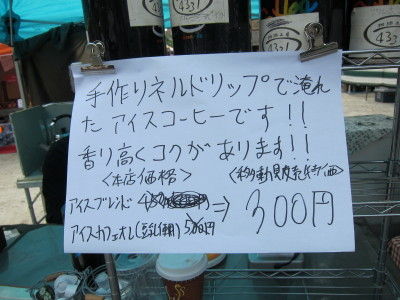 手作りネルドリップで淹れ
た アイスコーヒーです!!
香り高くコクがあります!!
<本店価格> <移動販売特価>
アイスブレンド ⇒ 300円
アイスカフェオレ 500円
4331
4331